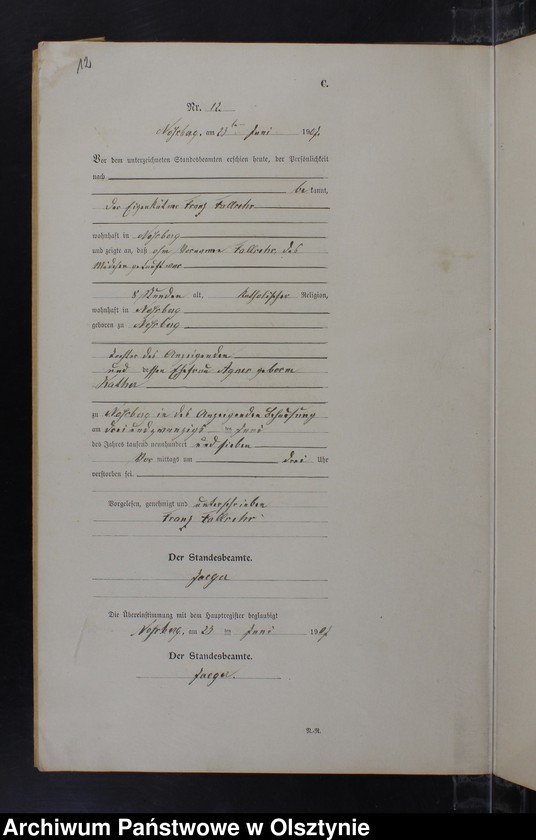 12
C.
Nr. 12
Nossberg, am 23ten Juni 1907.
Vor dem unterzeichneten Standesbeamten erschien heute, der Persönlichkeit
nach
be kannt,
der Eigenkätner Franz Fallrehr
wohnhaft in Nossberg
und zeigte an, daß ohne Vornamen Fallrehr, das
Mädchen getauft war
8 Stunden alt, Katholischer Religion,
wohnhaft in Nossberg
geboren zu Nossberg
Tochter des Anzeigenden
und dessen Ehefrau Agnes geborene
Kather
zu Nossberg in des Anzeigenden Behausung
am drei und zwanzigsten Juni
des Jahres tausend neunhundert und sieben
Vor mittags um drei Uhr
verstorben sei.
Vorgelesen, genehmigt und unterschrieben
Franz Fallrehr
Der Standesbeamte.
Jaeger
Die Übereinstimmung mit dem Hauptregister beglaubigt
Nossberg, am 23 ten Juni 1907
Der Standesbeamte.
Jaeger.
N.-R.
Archiwum Państwowe w Olsztynie